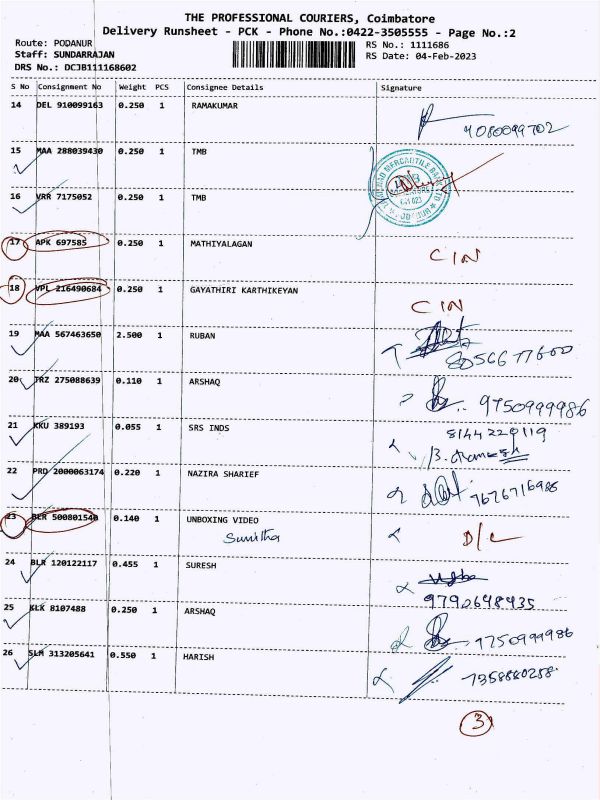 THE PROFESSIONAL COURIERS, Coimbatore
Delivery Runsheet - PCK - Phone No.:0422-3505555 - Page No.:2
Route: PODANUR
Staff: SUNDARRAJAN
DRS No.: DCJB111168602
RS No.: 1111686
RS Date: 04-Feb-2023
S No Consignment No Weight PCS Consignee Details Signature
14 DEL 910099163 0.250 1 RAMAKUMAR
9080099702
15 MAA 288039430 0.250 1 TMB
16 VRR 7175052 0.250 1 TMB
17 APK 697585 0.250 1 MATHIYALAGAN CIN
18 VPL 216490684 0.250 1 GAYATHIRI KARTHIKEYAN CIN
19 MAA 567463650 2.500 1 RUBAN
8056677600
20 TRZ 275088639 0.110 1 ARSHAQ 9750999986
21 KKU 389193 0.055 1 SRS INDS 8144220119
22 PRD 2000063174 0.220 1 NAZIRA SHARIEF 7676716986
23 BLR 500801540 0.140 1 UNBOXING VIDEO D/L
Sunitha
24 BLR 120122117 0.455 1 SURESH
9790648435
25 KLK 8107488 0.250 1 ARSHAQ 9750999986
26 SLM 313205641 0.550 1 HARISH 7358880258
3